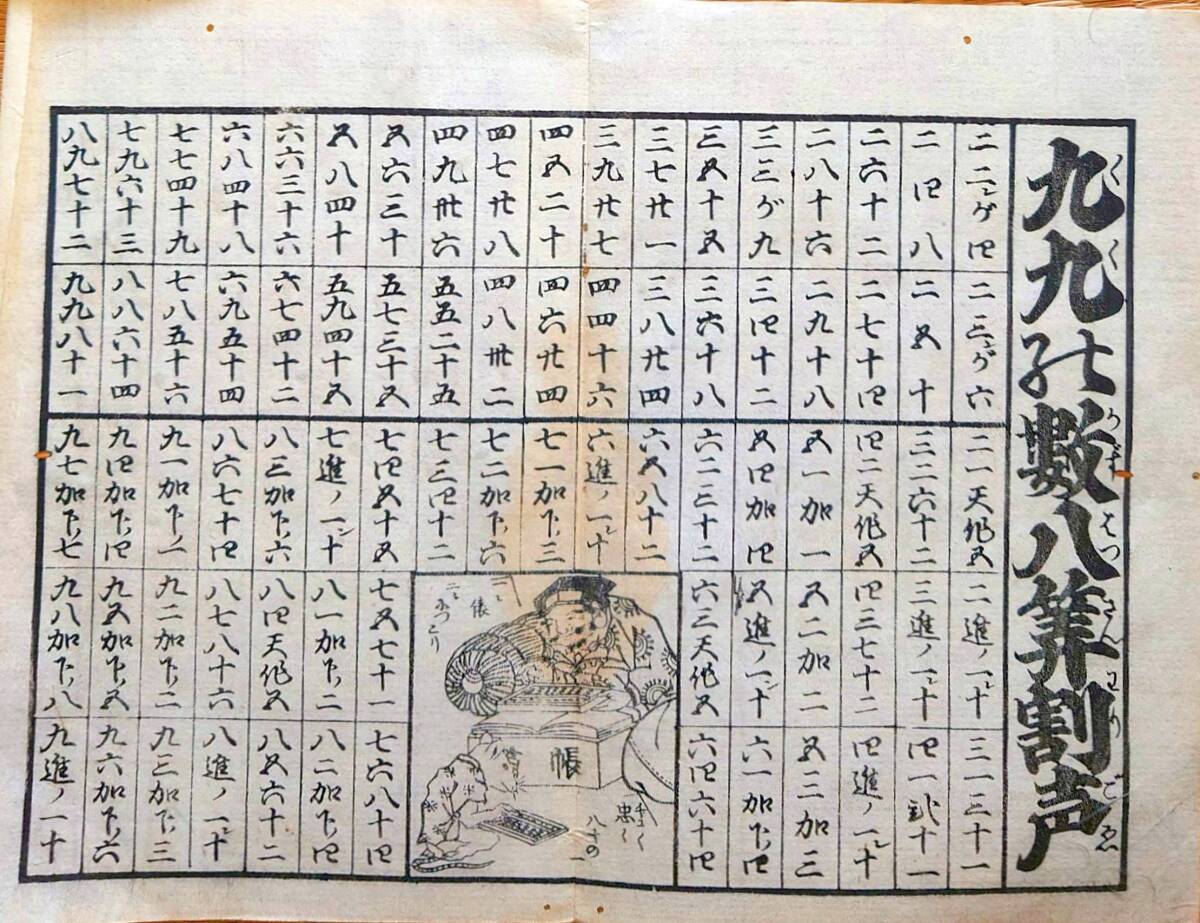 九九の數八算割声
くくのかずはつさんわりごゑ
二二ガ四
二三ガ六
二四八
二五十
二六十二
二七十四
二八十六
二九十八
三三ガ九
三四十二
三五十五
三六十八
三七廿一
三八廿四
三九廿七
四四十六
四五二十
四六廿四
四七廿八
四八卅二
四九卅六
五五二十五
五六三十
五七三十五
五八四十
五九四十五
六六三十六
六七四十二
六八四十八
六九五十四
七七四十九
七八五十六
七九六十三
八八六十四
八九七十二
九九八十一
二一天作五
二進ノ一十
三一三十一
三二六十二
三進ノ一十
四一弐十一
四二天作五
四三七十二
四進ノ一十
五一加一
五二加二
五三加三
五四加四
五進ノ一十
六一加下四
六二三十二
六三天作五
六四六十四
六五八十二
六進ノ一十
七一加下三
七二加下六
七三四十二
七四五十五
七五七十一
七六八十四
七進ノ一十
八一加下二
八二加下四
八三加下六
八四天作五
八五六十二
八六七十四
八七八十六
八進ノ一十
九一加下一
九二加下二
九三加下三
九四加下四
九五加下五
九六加下六
九七加下七
九八加下八
九進ノ一十
俵
帳